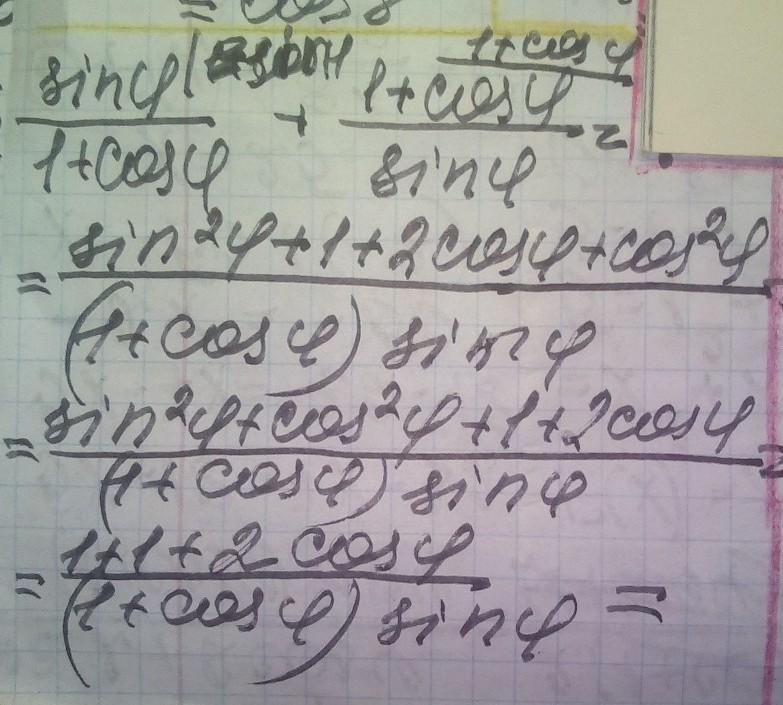 = cos 8
sinφ/(1+cosφ) + (1+cosφ)/sinφ =
1+cosφ
= (sin²φ+1+2cosφ+cos²φ)/((1+cosφ) sinφ)
= (sin²φ+cos²φ+1+2cosφ)/((1+cosφ) sinφ) =
= (1+1+2cosφ)/((1+cosφ) sinφ) =